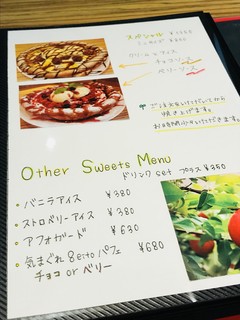 スペシャル ￥1050
クリーム & アイス
チョコソース
ベリーソース
ご注文をいただいてから
焼き上げます。
お時間少々いただきます。
Other Sweets Menu
ドリンク set プラス ￥350
・バニラアイス ￥380
・ストロベリーアイス ￥380
・アフォガード ￥630
・気まぐれ 8eito パフェ ￥680
チョコ or ベリー